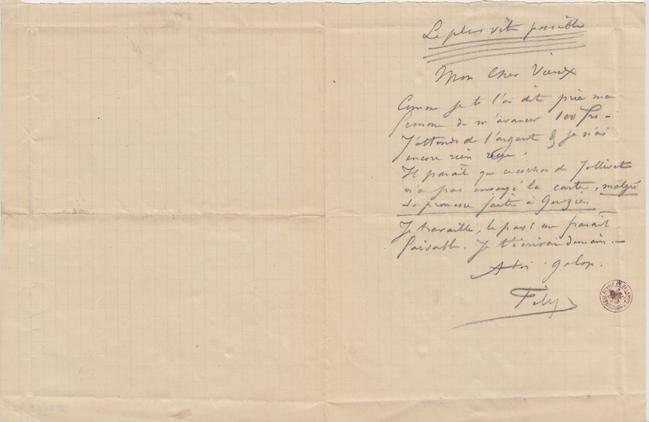 Le plus vite possible
Mon Cher Vieux
Comme je te l'ai dit prie ma
femme de m'avancer 100 frs —
J'attends de l'argent & je n'ai
encore rien reçu.
Il paraît que ce cochon de
n'a pas envoyé la carte, malgré
sa promesse faite à
Je travaille, le pays me paraît
faisable. Je t'écrirai demain. —
A toi galop.